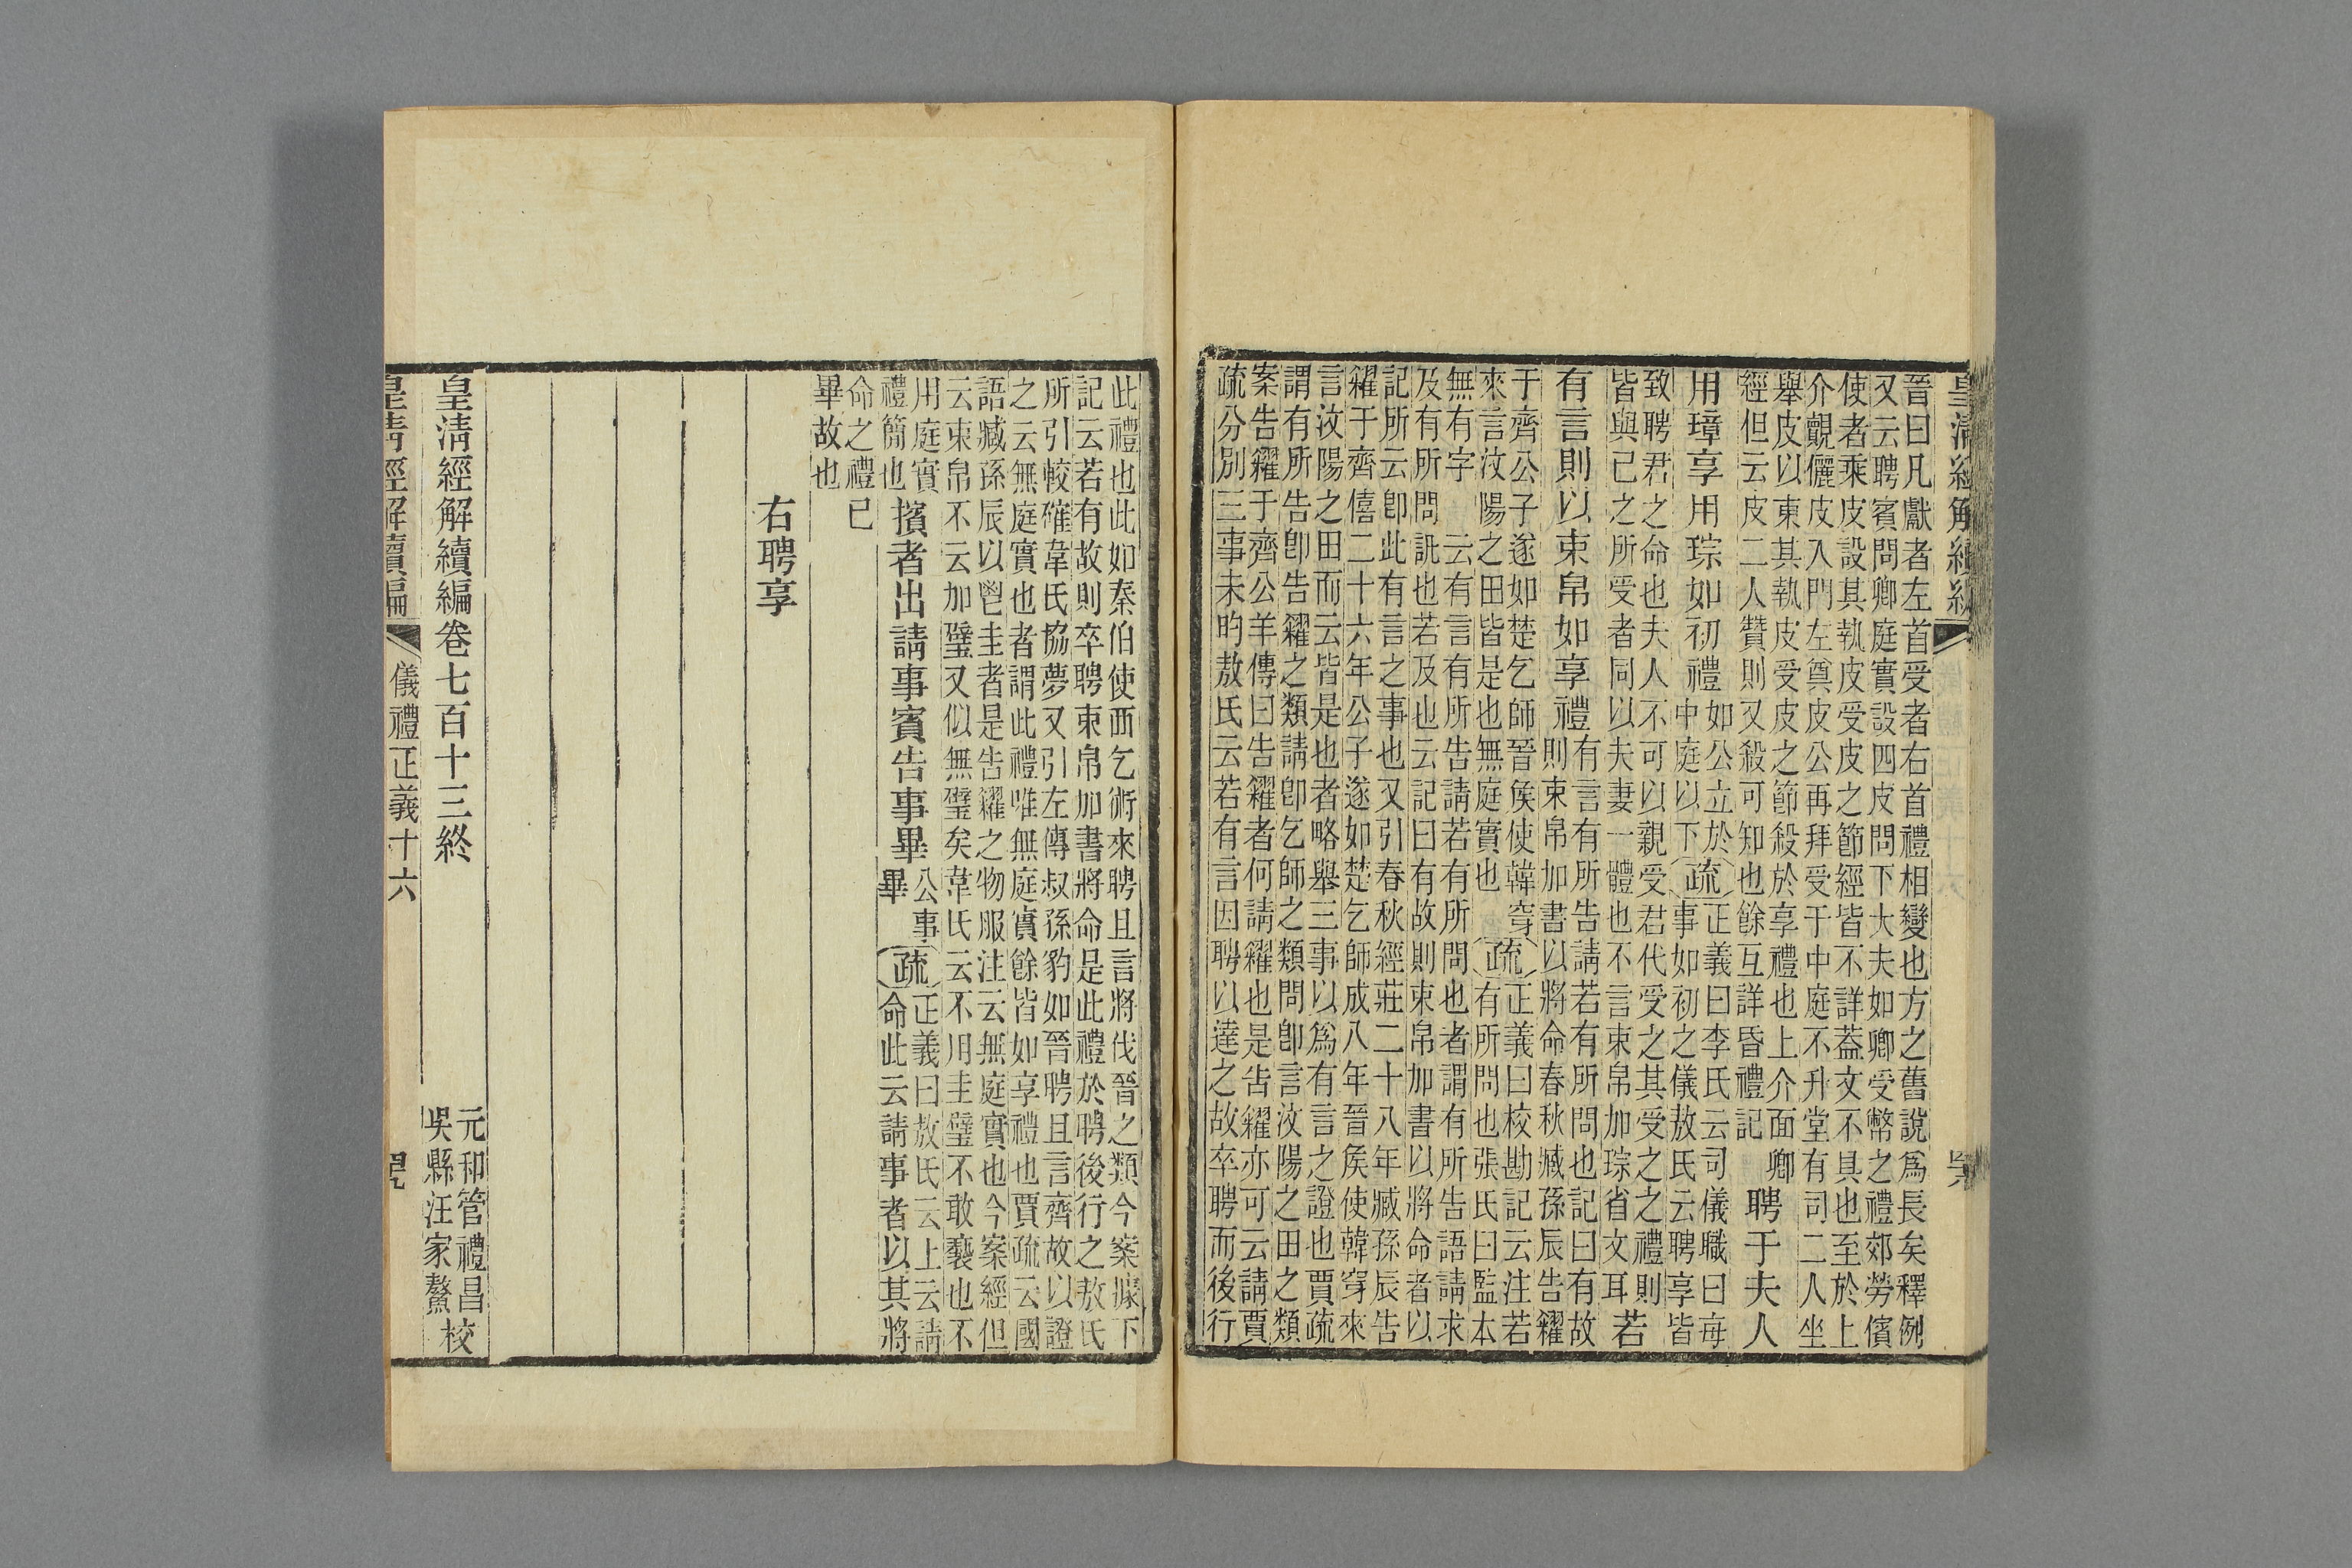 皇清經解續編
晉曰凡獻者左首受者右首禮相變也方之舊說爲長矣釋例
又云聘賓問卿庭實設四皮問下大夫如卿受幣之禮郊勞儐
使者乘皮設其執皮受皮之節經皆不詳蓋文不具也至於上
介覿儷皮入門左奠皮公再拜受于中庭不升堂有司二人坐
舉皮以東其執皮受皮之節殺於享禮也上介面卿
經但云皮二人贊則又殺可知也餘互詳昏禮記
聘于夫人
用璋享用琮如初禮
如公立於
中庭以下
疏
正義曰李氏云司儀職曰每
事如初之儀敖氏云聘享皆
致聘君之命也夫人不可以親受君代受之其受之之禮則
皆與己之所受者同以夫妻一體也不言束帛加琮省文耳
若
有言則以束帛如享禮
有言有所告請若有所問也記曰有故
則束帛加書以將命春秋臧孫辰告糴
于齊公子遂如楚乞師晉侯使韓穿
來言汶陽之田皆是也無庭實也
疏
正義曰校勘記云注若
有所問也張氏曰監本
無有字 云有言有所告請若有所問也者謂有所告語請求
及有所問訊也若及也云記曰有故則束帛加書以將命者以
記所云卽此有言之事也又引春秋經莊二十八年臧孫辰告
糴于齊僖二十六年公子遂如楚乞師成八年晉侯使韓穿來
言汶陽之田而云皆是也者略舉三事以爲有言之證也賈疏
謂有所告卽告糴之類請卽乞師之類問卽言汶陽之田之類
案告糴于齊公羊傳曰告糴者何請糴也是告糴亦可云請賈
疏分別三事未昀敖氏云若有言因聘以達之故卒聘而後行
此禮也此如秦伯使西乞術來聘且言將伐晉之類今案據下
記云若有故則卒聘束帛加書將命是此禮於聘後行之敖氏
所引較確韋氏協夢又引左傳叔孫豹如晉聘且言齊故以證
之云無庭實也者謂此禮唯無庭實餘皆如享禮也賈疏云國
語臧孫辰以鬯圭者是告糴之物服注云無庭實也今案經但
云束帛不云加璧又似無璧矣韋氏云不用圭璧不敢褻也不
用庭實
禮簡也
擯者出請事賓告事畢
公事
畢
疏
正義曰敖氏云上云請
命此云請事者以其將
命之禮已
畢故也
右聘享
皇清經解續編卷七百十三終
元和管禮昌
吳縣汪家鰲
校
皇清經解續編
儀禮正義十六